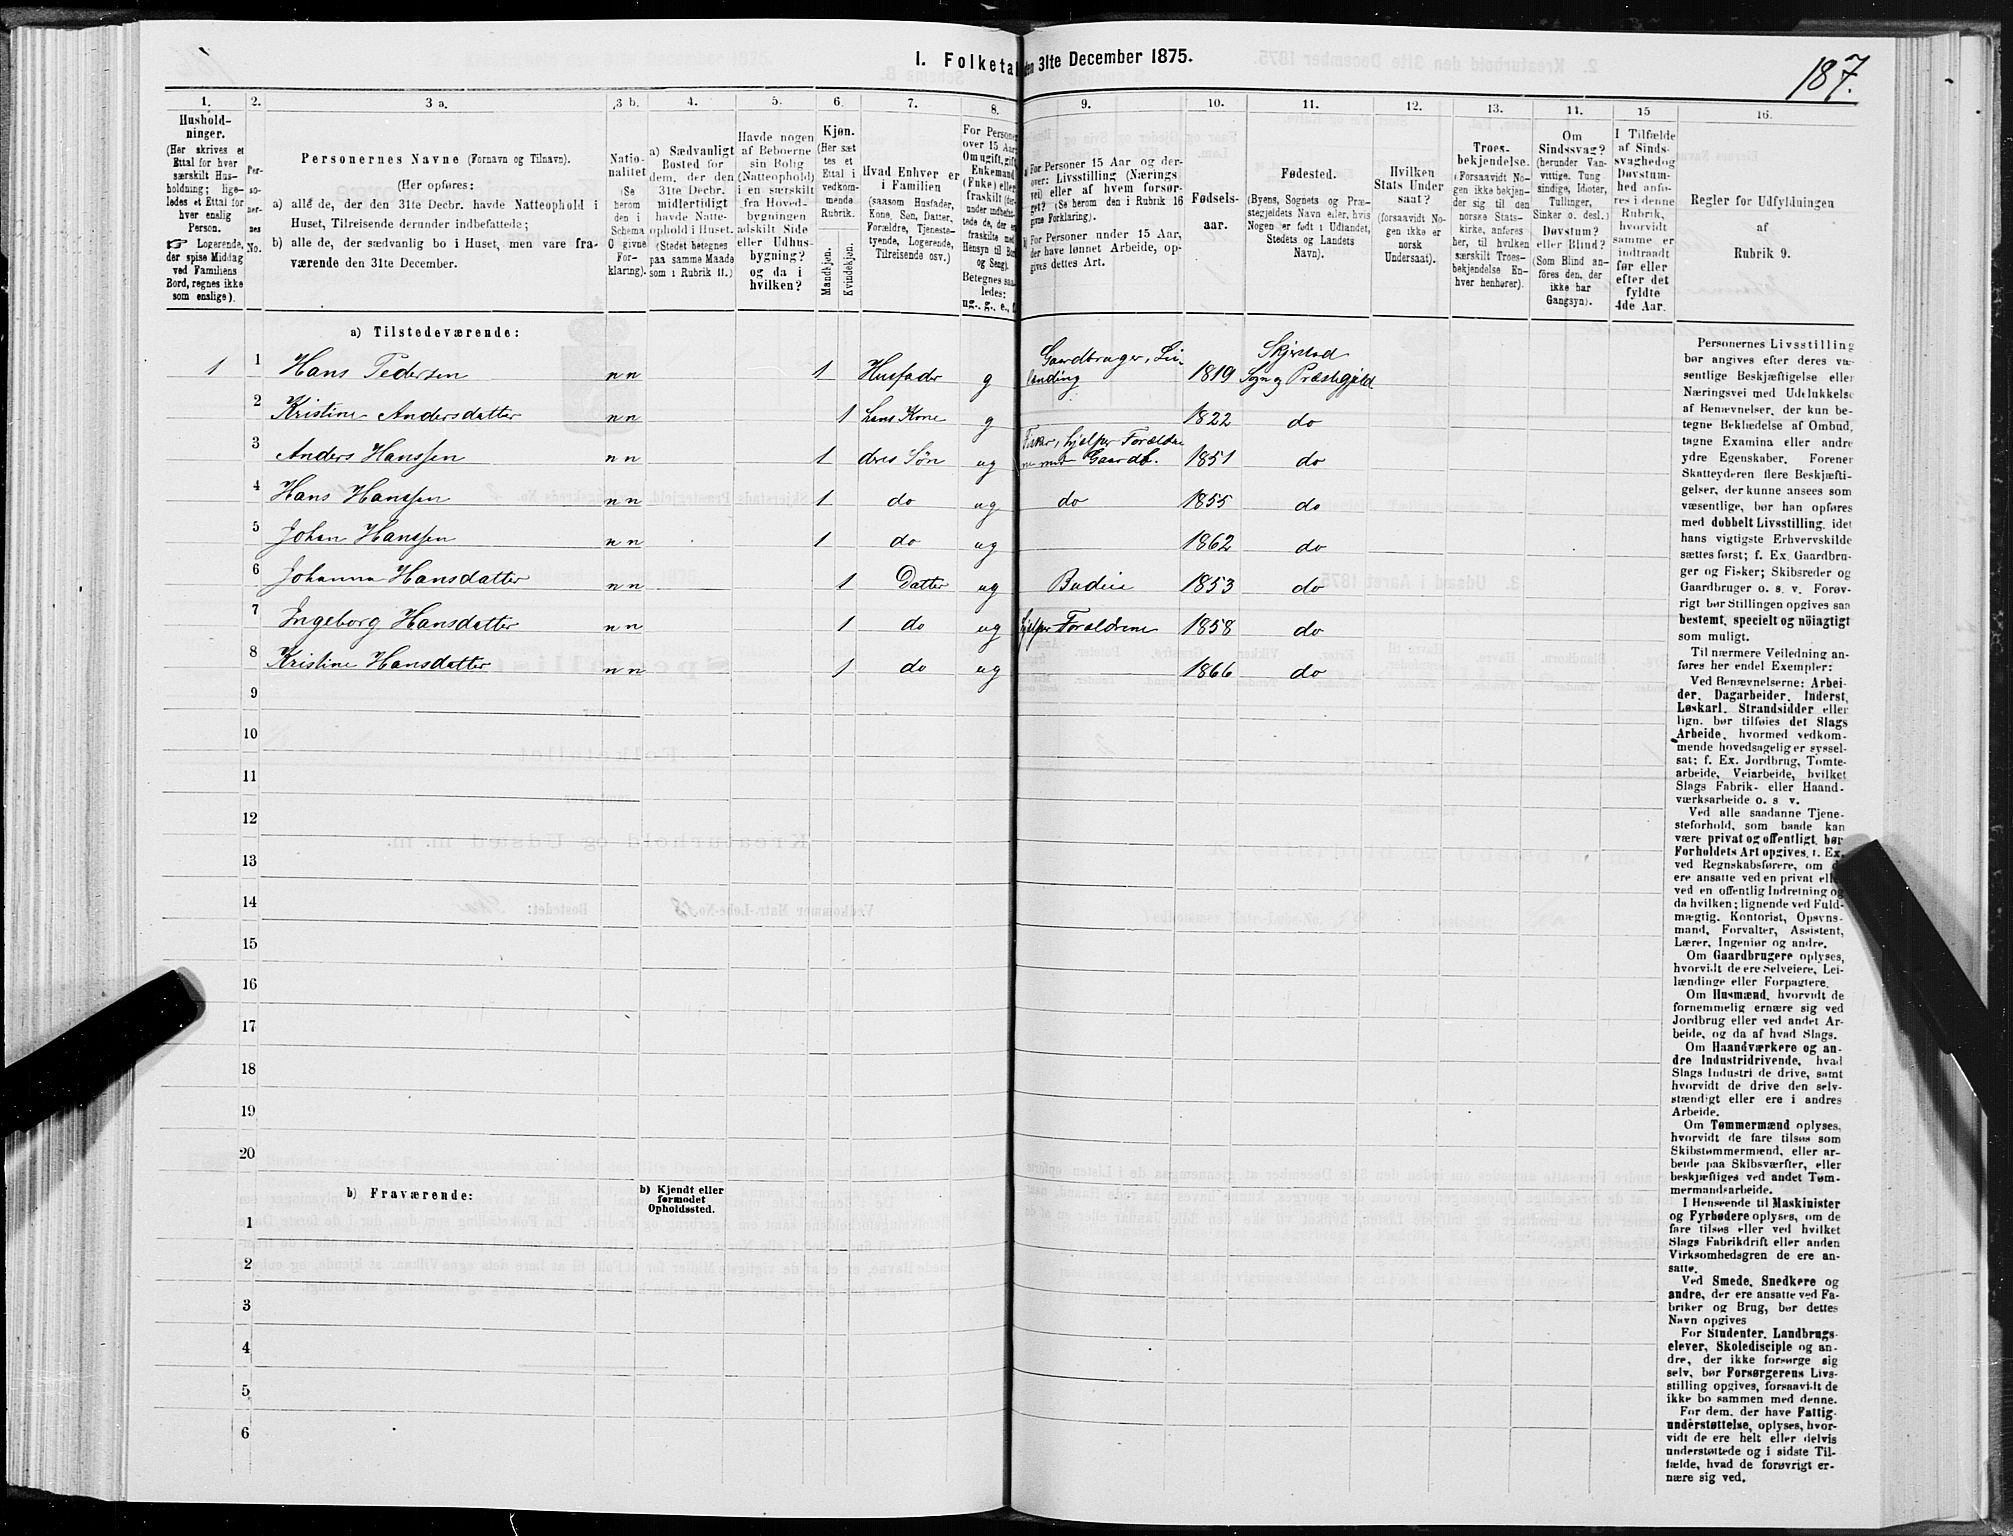 187.
I. Folketal den 31te December 1875.
1. 2. 3 a. 3 b. 4. 5. 6. 7. 8. 9. 10. 11. 12. 13. 14. 15 16.
Hushold-
ninger.
(Her skrives et
Ettal for hver
særskilt Hus-
holdning; lige-
ledes et Ettal for
hver enslig
Person.
☞ Logerende,
der spise Middag
ved Familiens
Bord, regnes ikke
som enslige).
Per-
so-
ner-
nes
No.
Personernes Navne (Fornavn og Tilnavn).
(Her opføres:
a) alle de, der den 31te Decbr. havde Natteophold i
Huset, Tilreisende derunder indbefattede;
b) alle de, der sædvanlig bo i Huset, men vare fra-
værende den 31te December.
Natio-
nalitet
(Se
herom
den i
Schema
C givne
For-
klaring).
a) Sædvanligt
Bosted for
dem, der den
31te Decbr.
midlertidigt
havde Natte-
ophold i Huset.
(Stedet betegnes
paa samme Maade
som i Rubrik 11.)
Havde nogen
af Beboerne
sin Bolig
(Natteophold)
i en særskilt
fra Hoved-
bygningen
adskilt Side
eller Udhus-
bygning?
og da i
hvilken?
Kjøn.
(Her sæt-
tes et
Ettal i
vedkom-
mende
Rubrik.
Mandkjøn.
Kvindekjøn.
Hvad Enhver er
i Familien
(saasom Husfader,
Kone, Søn, Datter,
Forældre, Tjeneste-
tyende, Logerende,
Tilreisende osv.)
For Personer
over 15 Aar:
Om ugift, gift,
Enkemand
(Enke) eller
fraskilt
Betegnes saa-
ledes:
ug., g., e., f.
a) For Personer 15 Aar og der-
over: Livsstilling (Nærings-
vei) eller af hvem forsør-
get? (Se herom den i Rubrik 16
givne Forklaring).
b) For Personer under 15 Aar,
der have lønnet Arbeide, op-
gives dettes Art.
Fødsels-
aar.
Fødested.
(Byens, Sognets og Præ-
stegjeldets Navn eller, hvis
Nogen er født i Udlandet,
Stedets og Landets
Navn).
Hvilken
Stats Under-
saat?
(forsaavidt No-
gen ikke er
norsk
Undersaat).
Troes-
bekjendelse.
(Forsaavidt No-
gen ikke bekjen-
der sig til den
norske Stats-
kirke, anføres
her, til hvilken
særskilt Troes-
bekjendelse En-
hver henhører).
Om
Sindssvag?
(herunder Van-
vittige, Tung-
sindige, Idioter,
Tullinger,
Sinker o. desl.)
Døvstum?
eller Blind?
(Som Blind an-
føres den, der
ikke har
Gangsyn).
I Tilfælde
af Sinds-
svaghed og
Døvstum-
hed anfø-
res i denne
Rubrik,
hvorvidt
samme er
indtraadt
før eller
efter det
fyldte
4de Aar.
Regler for Udfyldningen
af
Rubrik 9.
a) Tilstedeværende:
1 1 Hans Pedersen n n 1 Husfader g Gaardbruger, Lei-
lænding 1819 Skjerstad
Sogn og Præstegjeld
2 Kristine Andersdatter n n 1 hans Kone g 1822 do
3 Anders Hanssen n n 1 deres Søn ug Fisker, hjælper Forældre
ne med Gaardb. 1851 do
4 Hans Hanssen n n 1 do ug do 1855 do
5 Johan Hanssen n n 1 do ug 1862 do
6 Johanna Hansdatter n n 1 Datter ug Budeie 1853 do
7 Ingeborg Hansdatter n n 1 do ug hjelper Forældrene 1858 do
8 Kristine Hansdatter n n 1 do ug 1866 do
9
10
11
12
13
14
15
16
17
18
19
20
b) Fraværende:
b) Kjendt eller
formodet
Opholdssted.
1
2
3
4
5
6
Personernes Livsstilling
bør angives efter deres væ-
sentlige Beskjæftigelse eller
Næringsvei med Udelukkelse
af Benævnelser, der kun be-
tegne Beklædelse af Ombud,
tagne Examina eller andre
ydre Egenskaber. Forener
Skatteyderen flere Beskjæfti-
gelser, der kunne ansees som
væsentlige, bør han opføres
med dobbelt Livsstilling, idet
hans vigtigste Erhvervskilde
sættes først; f. Ex. Gaardbru-
ger og Fisker; Skibsreder og
Gaardbruger o. s. v. Forøv-
rigt bør Stillingen opgives saa
bestemt, specielt og nöiagtigt
som muligt.
Til nærmere Veiledning an-
føres her endel Exempler:
Ved Benævnelserne: Arbei-
der, Dagarbeider, Inderst,
Løskarl, Strandsidder eller
lign. bør tilføies det Slags
Arbeide, hvormed vedkom-
mende hovedsagelig er syssel-
sat; f. Ex. Jordbrug, Tomte-
arbeide, Veiarbeide, hvilket
Slags Fabrik- eller Haand-
værksarbeide o. s. v.
Ved alle saadanne Tjene-
steforhold, som baade kan
være privat og offentligt, bør
Forholdets Art opgives, t. Ex.
ved Regnskabsførere, om de
ere ansatte ved en privat eller
ved en offentlig Indretning og
da hvilken; lignende ved Fuld-
mægtig, Kontorist, Opsyns-
mand, Forvalter, Assistent,
Lærer, Ingeniør og andre.
Om Gaardbrugere oplyses,
hvorvidt de ere Selveiere, Lei-
lændinge eller Forpagtere.
Om Husmænd, hvorvidt de
fornemmelig ernære sig ved
Jordbrug eller ved andet Ar-
beide, og da af hvad Slags.
Om Haandværkere og an-
dre Industridrivende, hvad
Slags Industri de drive, samt
hvorvidt de drive den selv-
stændigt eller ere i andres
Arbeide.
Om Tømmermænd oplyses,
hvorvidt de fare tilsøs som
Skibstømmermænd, eller ar-
beide paa Skibsværfter, eller
beskjæftiges ved andet Tøm-
mermandsarbeide.
I Henseende til Maskinister
og Fyrbødere oplyses, om de
fare tilsøs eller ved hvilket
Slags Fabrikdrift eller anden
Virksomhedsgren de ere an-
satte.
Ved Smede, Snedkere og
andre, der ere ansatte ved Fa-
briker og Brug, bør dettes
Navn opgives
For Studenter, Landbrugs-
elever, Skoledisciple og an-
dre, der ikke forsørge sig
selv, bør Forsørgerens Livs-
stilling opgives, forsaavilt de
ikke bo sammen med denne.
For dem, der have Fattig-
understøttelse, oplyses, hvor-
vidt de ere helt eller delvis
understøttede og i sidste Til-
fælde, hvad de forøvrigt er-
nære sig ved.